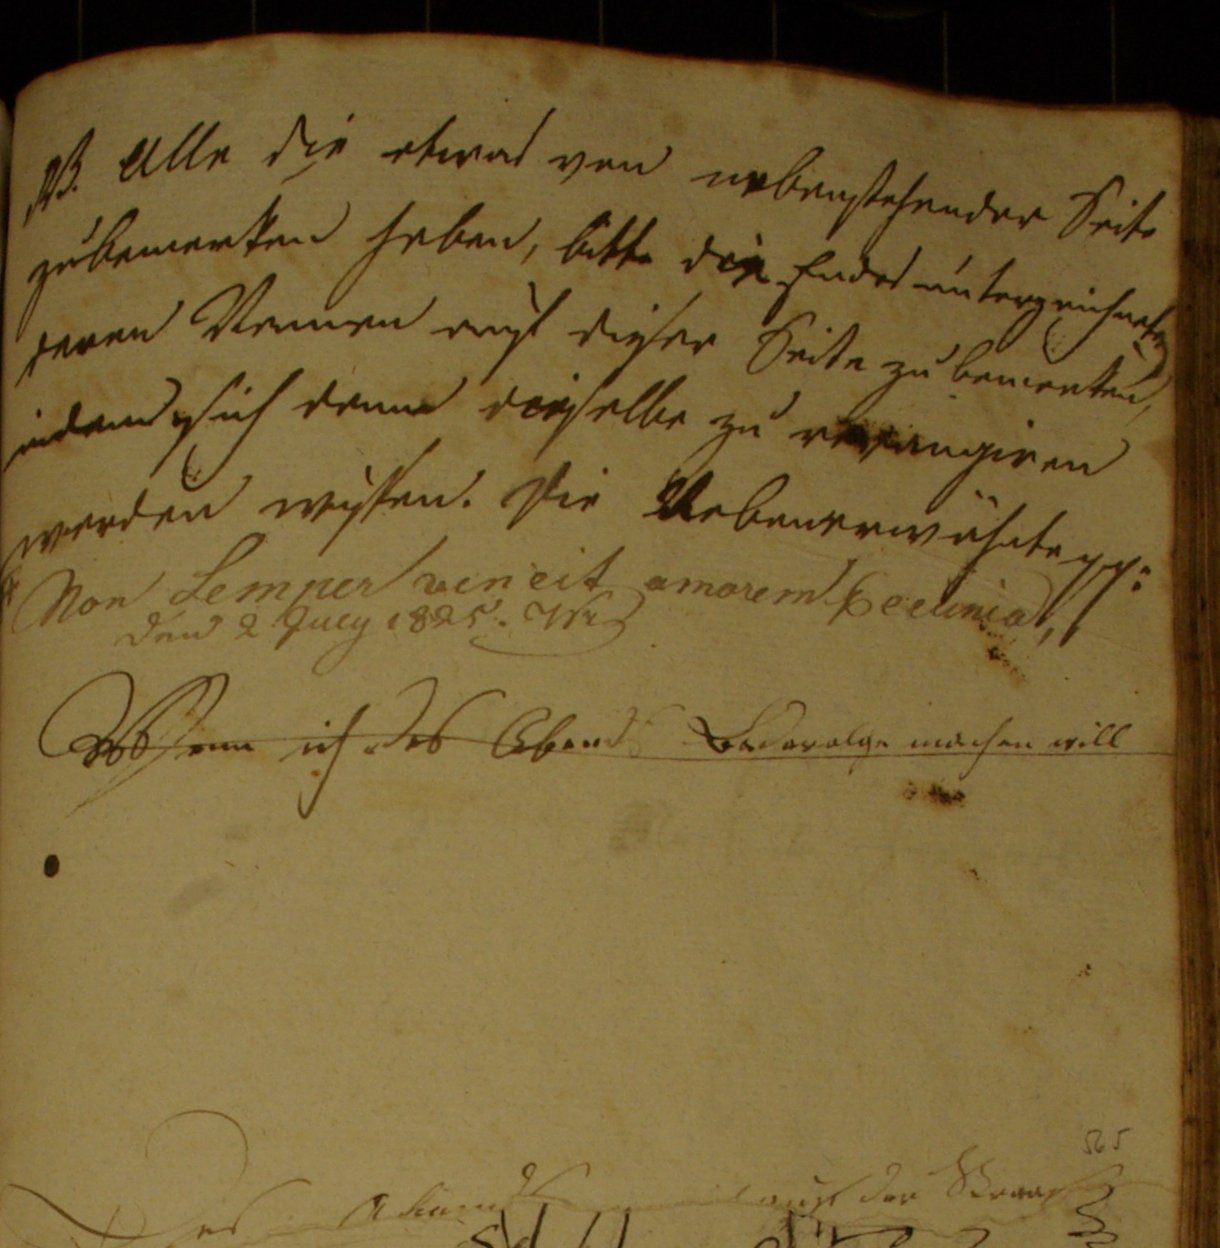 NB. Alle die etwas von nebenstehender Seite
zu bemerken haben, bitte die Endes unterzeichnete
deren Namen auf dieser Seite zu bemerken,
indem sich denn dieselbe zu revangiren
werden wissen. Die Nebenerwähnte pp:
Non Semper vincit amorem Peclinia,
den 2 July 1825.
Wenn ich des Abends machen will
565
Des auf der